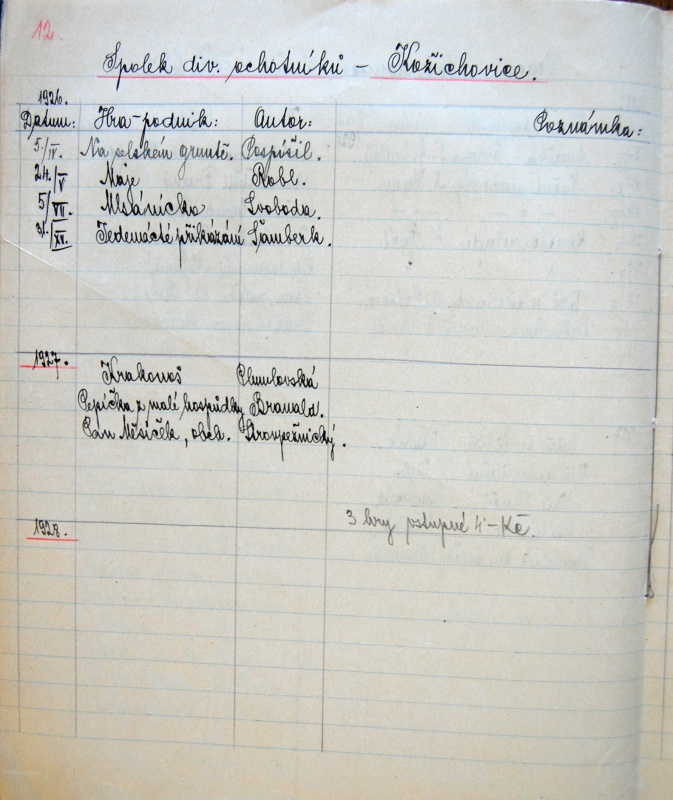 12.
Spolek div. ochotníků – Kožichovice.
1926.
Datum: Hra-podnik: Autor: Poznámka:
5/IV. Na selském gruntě. Pospíšil.
24./V Máje Robl.
5/VII. Mlsánícko Svoboda.
31./XII. Jedenácté přikázání Šamberk.
1927. Krakonoš Chumlovská
Pepička z malé hospůdky Brawald.
Pan Měsíček, obch. Stroupežnický.
1928. 3 hry vstupné 4·–Kč.